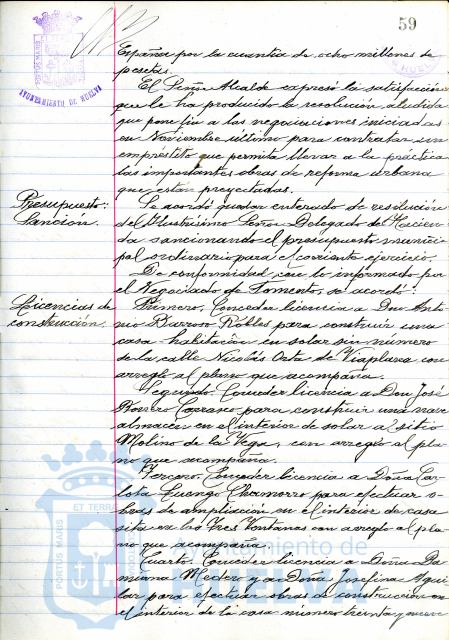 59
AYUNTAMIENTO DE HUELVA
España por la cuantía de ocho millones de
pesetas.
El Señor Alcalde expresó la satisfacción
que le ha producido la resolución aludida
que pone fin a las negociaciones iniciadas
en Noviembre último para contratar un
empréstito que permita llevar a la práctica
las importantes obras de reforma urbana
que están proyectadas.
Presupuesto:
Sanción.
Se acordó quedar enterado de resolución
del Ilustrísimo Señor Delegado de Hacien-
da sancionando el presupuesto munici-
pal ordinario para el corriente ejercicio.
De conformidad con lo informado por
el Negociado de Fomento, se acordó:
Licencias de
construcción.
Primero. Conceder licencia a Don Anto-
nio Barroso Robles para construir una
casa habitación en solar sin número
de la calle Nicolás Orta de Viaplana con
arreglo al plano que acompaña.
Segundo. Conceder licencia a Don José
Borrero Carrasco para construir una nave
almacen en el interior de solar al sitio
Molino de la Vega, con arreglo al pla-
no que acompaña.
Tercero. Conceder licencia a Doña Car-
lota Cuango Chamorro para efectuar o-
bras de ampliación en el interior de casa
sita en las Tres Ventanas con arreglo al pla-
no que acompaña.
Cuarto. Conceder licencia a Doña Da-
miana Medero y a Doña Josefina Agui-
lar para efectuar obras de construcción en
el interior de la casa número treinta y nueve
ET TERRAE
PORTUS MARIS
Ayuntamiento de
HUELVA